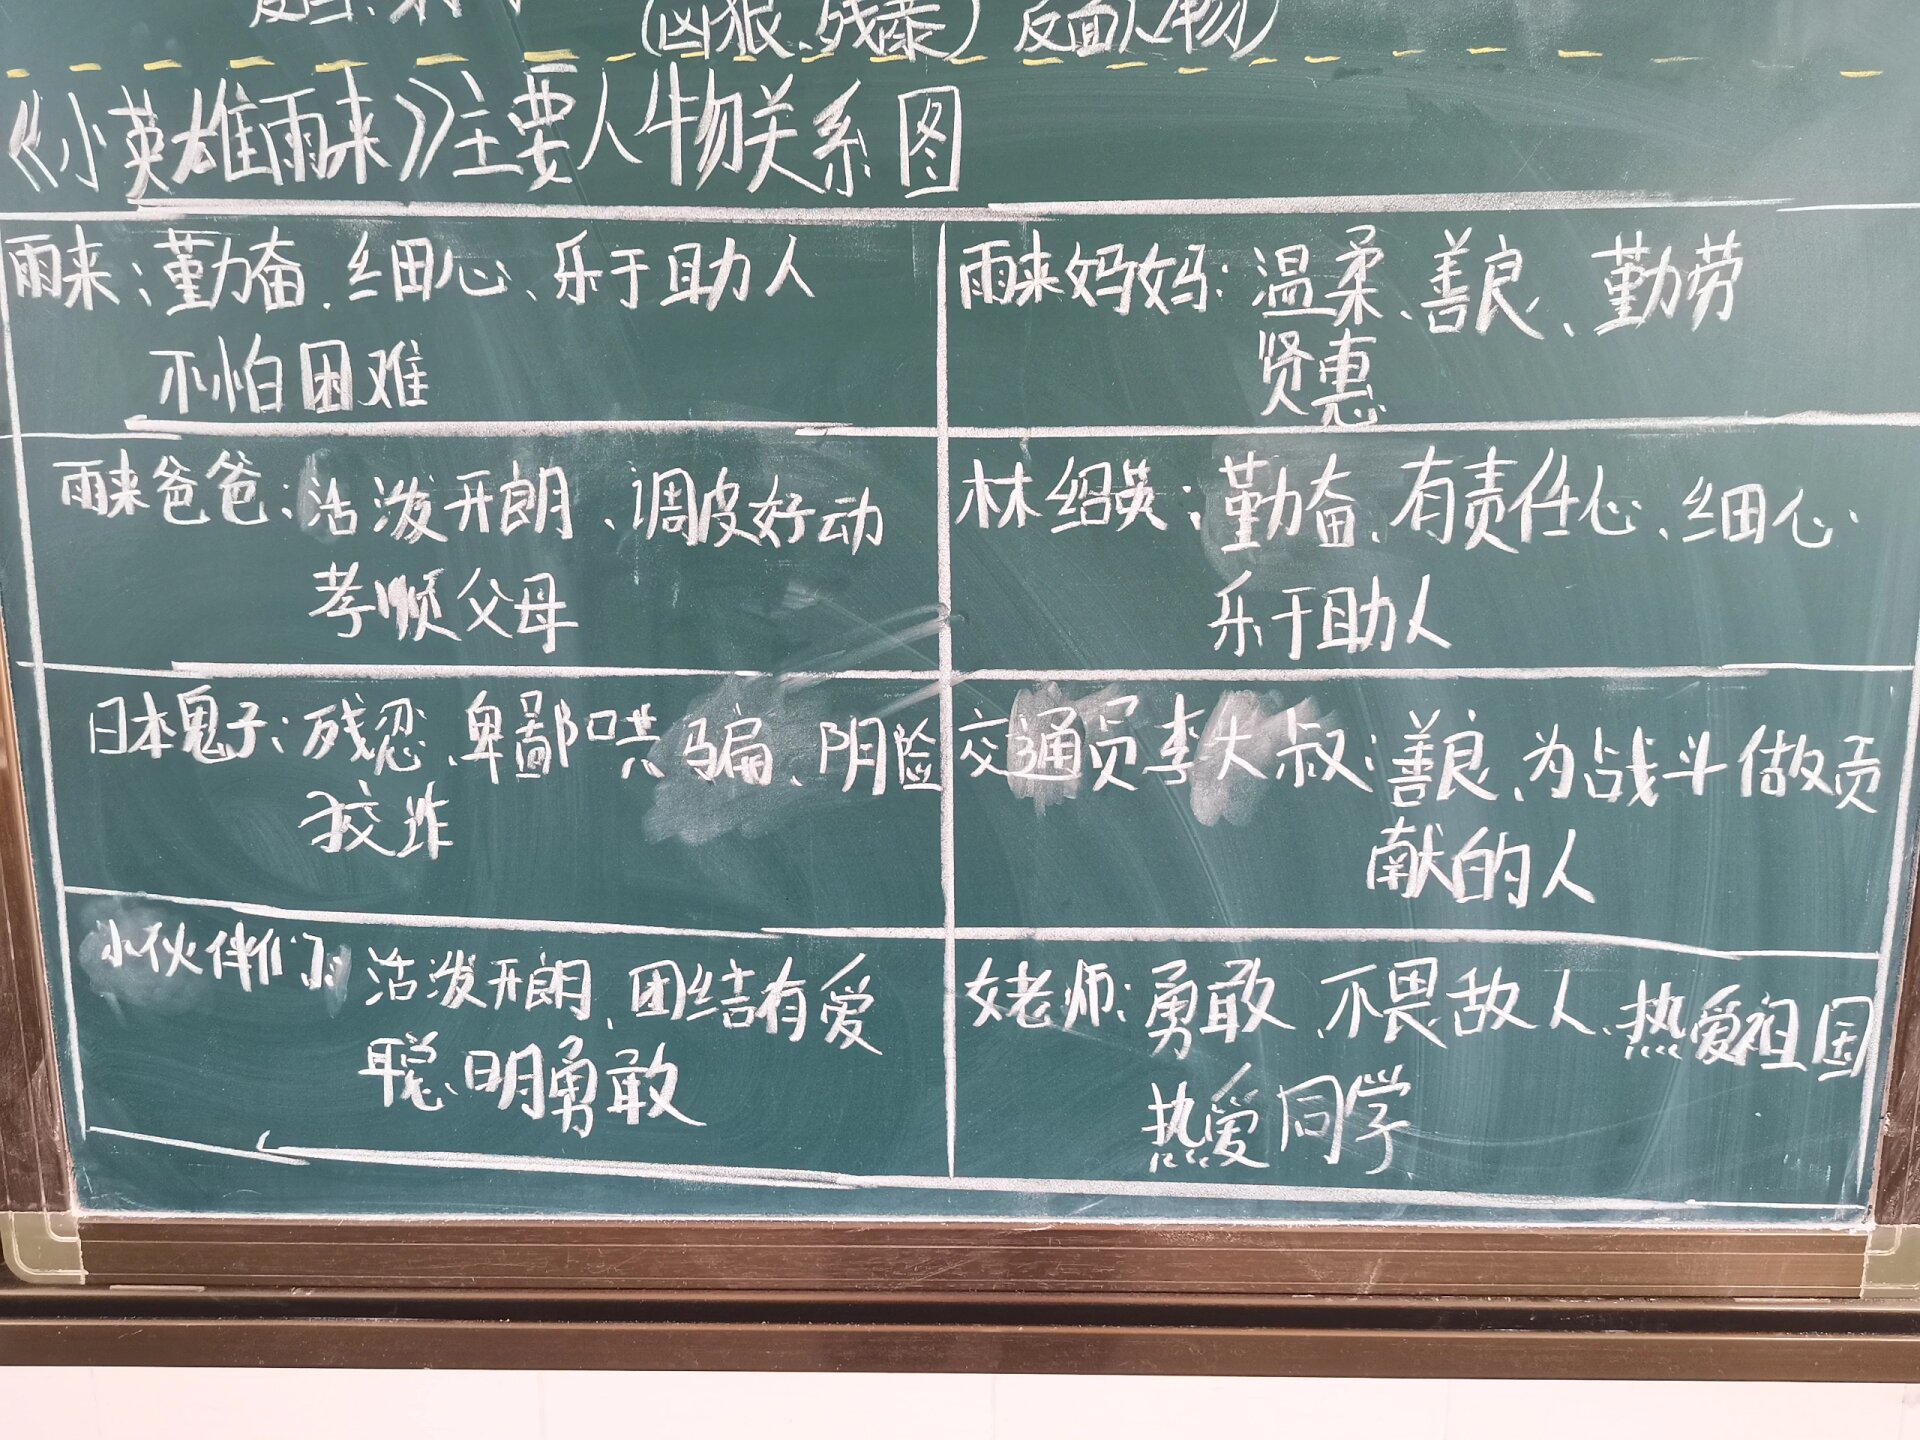 (凶狠、残暴) 反面人物)
《小英雄雨来》主要人物关系图
雨来:勤奋、细心、乐于助人
不怕困难
雨来妈妈:温柔、善良、勤劳
贤惠
雨来爸爸:活泼开朗、调皮好动
孝顺父母
林绍英:勤奋、有责任心、细心
乐于助人
日本鬼子:残忍、卑鄙哄骗、阴险
狡诈
交通员李大叔:善良、为战斗做贡
献的人
小伙伴们:活泼开朗、团结有爱
聪明勇敢
女老师:勇敢、不畏敌人、热爱祖国
热爱同学